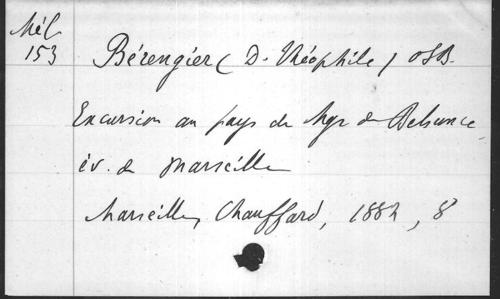 Mél
153
Bérengier (D. Théophile) OSB.
Excursion au pays de Mgr de Belsunce
év. de Marseille
Marseille, Chauffard, 1882, 8